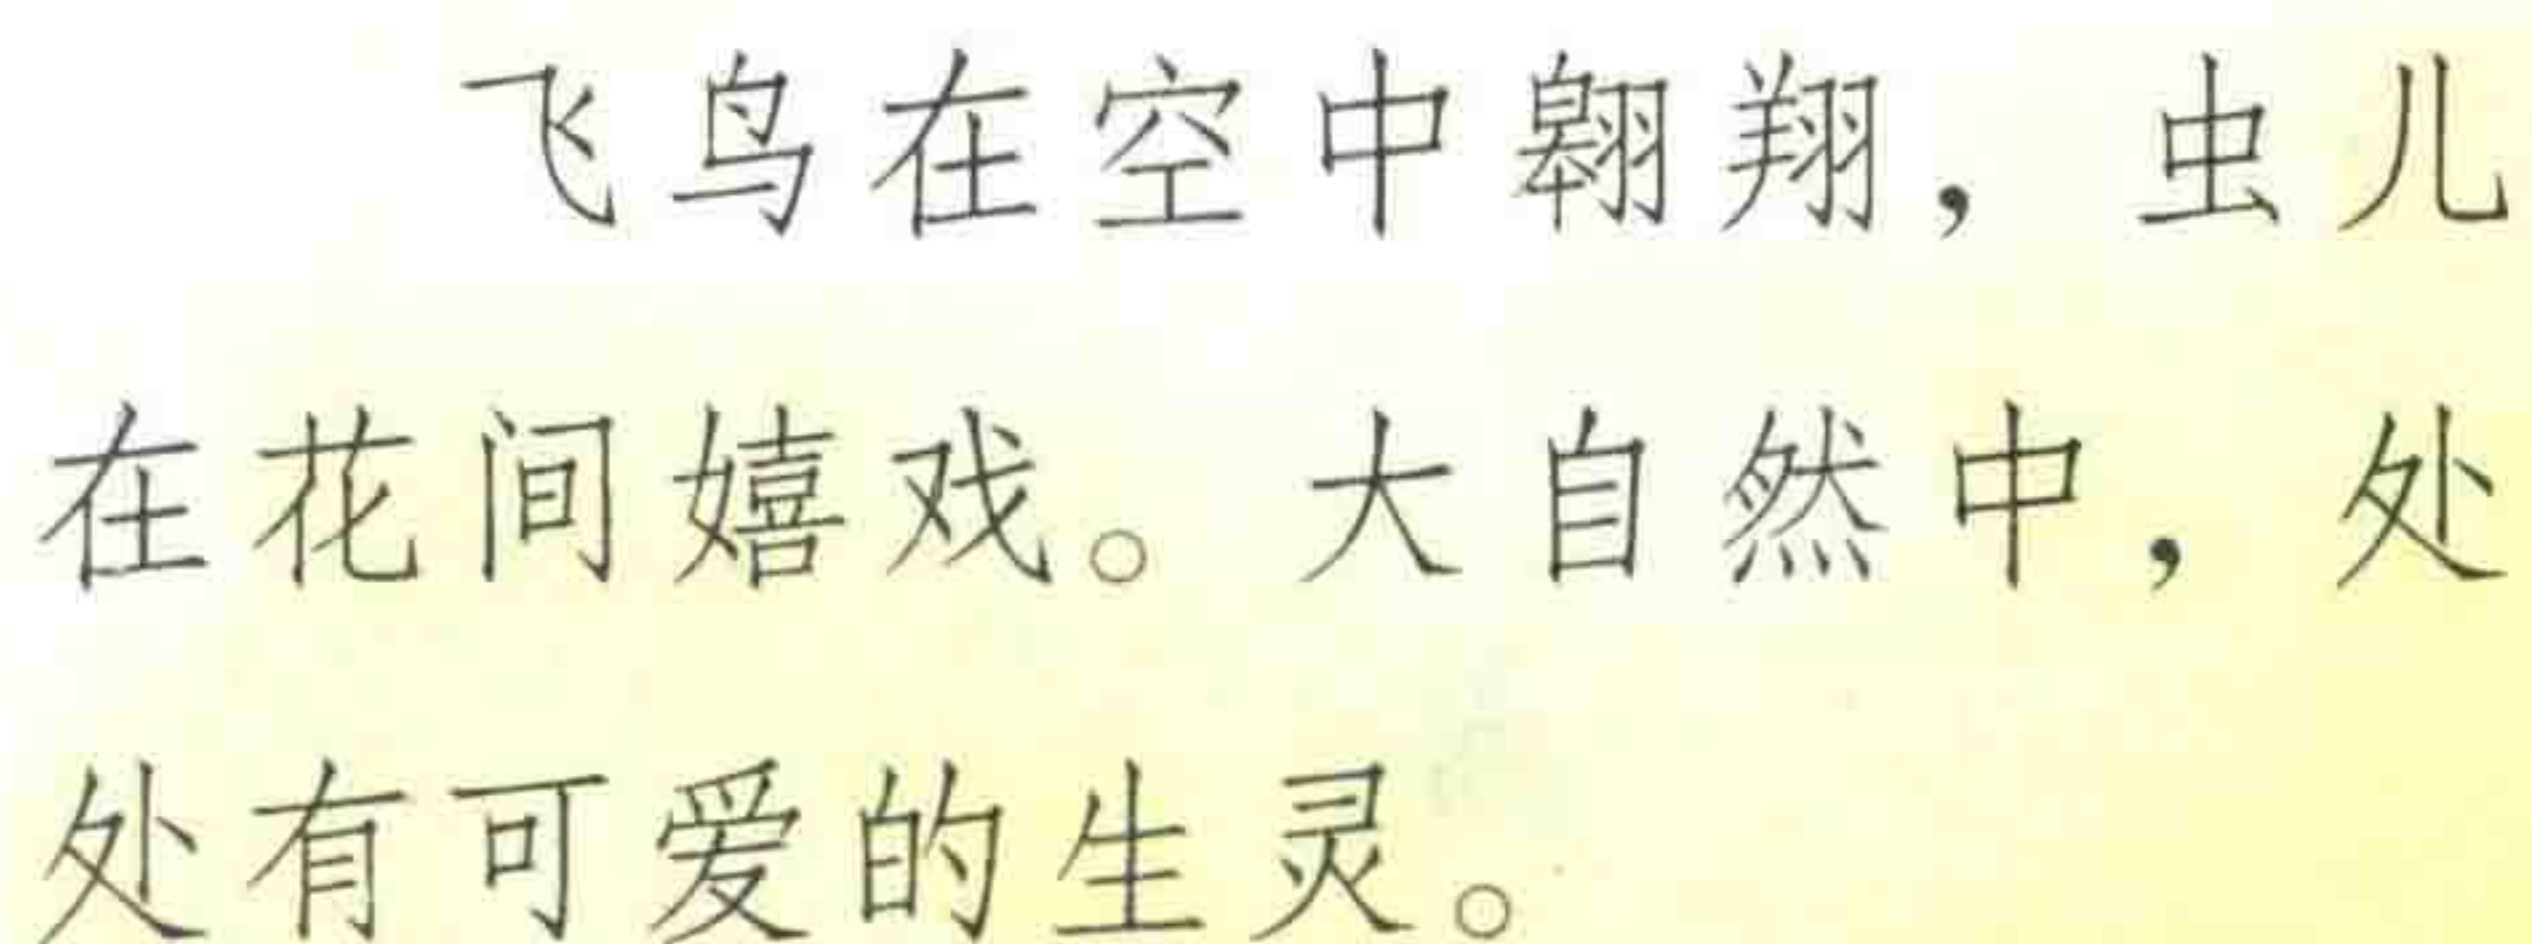 飞鸟在空中翱翔，虫儿
在花间嬉戏。大自然中，处
处有可爱的生灵。